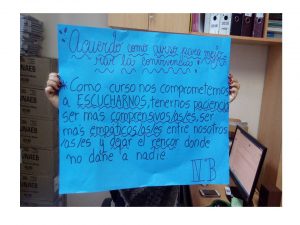 "Acuerdo como curso para mejo-
rar la convivencia"
* Como curso nos comprometemos
a ESCUCHARNOS, tenernos paciencia
ser mas comprensivos/as/es, ser
mas empaticos/as/es entre nosotros
/as/es y dejar el rencor donde
no dañe a nadie
IV°B
UNAEB